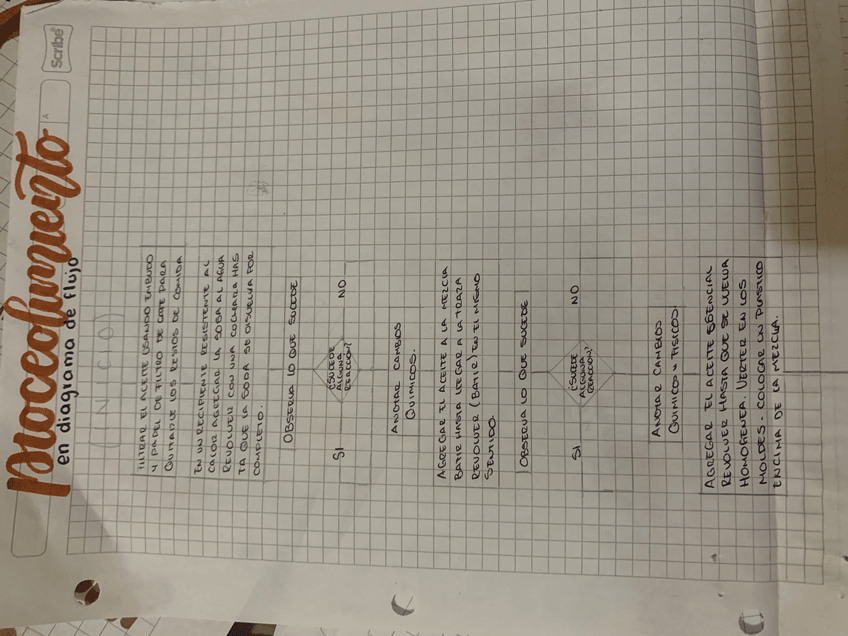 Scribe
Procedimiento
en diagrama de flujo
INICIO
FILTRAR EL ACEITE USANDO EMBUDO
Y PAPEL DE FILTRO DE CAFE PARA
QUITARLE LOS RESTOS DE COMIDA
EN UN RECIPIENTE RESISTENTE AL
CALOR AGREGAR LA SOSA AL AGUA
REVOLVER CON UNA CUCHARA HAS
TA QUE LA SODA SE DISUELVA POR
COMPLETO.
OBSERVA LO QUE SUCEDE
¿SUCEDE
ALGUNA
REACCION?
SI
NO
ANOTAR CAMBIOS
QUIMICOS.
AGREGAR EL ACEITE A LA MEZCLA
BATIR HASTA LLEGAR A LA TRAZA
REVOLVER (BATIR) EN EL MISMO
SENTIDO.
OBSERVA LO QUE SUCEDE
¿SUCEDE
ALGUNA
REACCION?
SI
NO
ANOTAR CAMBIOS
QUIMICOS Y FISICOS.
AGREGAR EL ACEITE ESENCIAL
REVOLVER HASTA QUE SE VUELVA
HOMOGENEA. VERTER EN LOS
MOLDES. COLOCAR UN PLASTICO
ENCIMA DE LA MEZCLA.